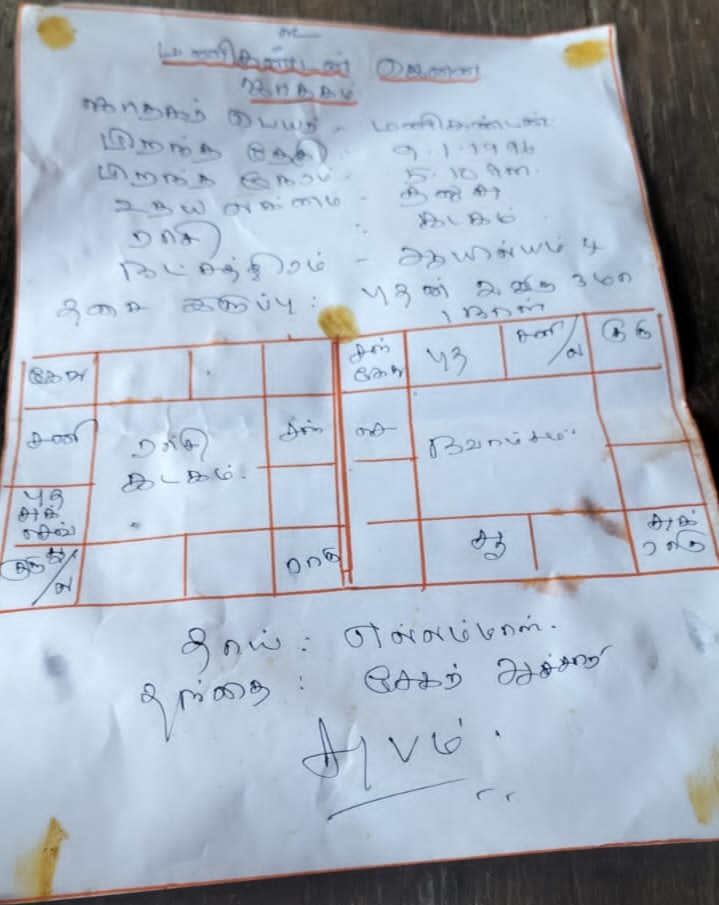 மணிகண்டன்
ஜாதகம்
ஜாதகர் பெயர் - மணிகண்டன்
பிறந்த தேதி : 9-1-1996
பிறந்த நேரம் - 5-10 am
உதய லக்னம் - தனுசு
ராசி : கடகம்
நட்சத்திரம் - ஆயில்யம் 4
தசை இருப்பு : புதன்
1 நாள்
கேது
சனி
ராசி
கடகம்.
சந்
புத
சுக்
செவ்
ல
ராகு
சந்
கேது
புத
சனி/ல
குரு
செ
நவாம்சம்
சூ
சுக்
ராகு
தாய் : எல்லம்மாள்.
தந்தை : சேகர் ஆச்சாரி
சுபம்.